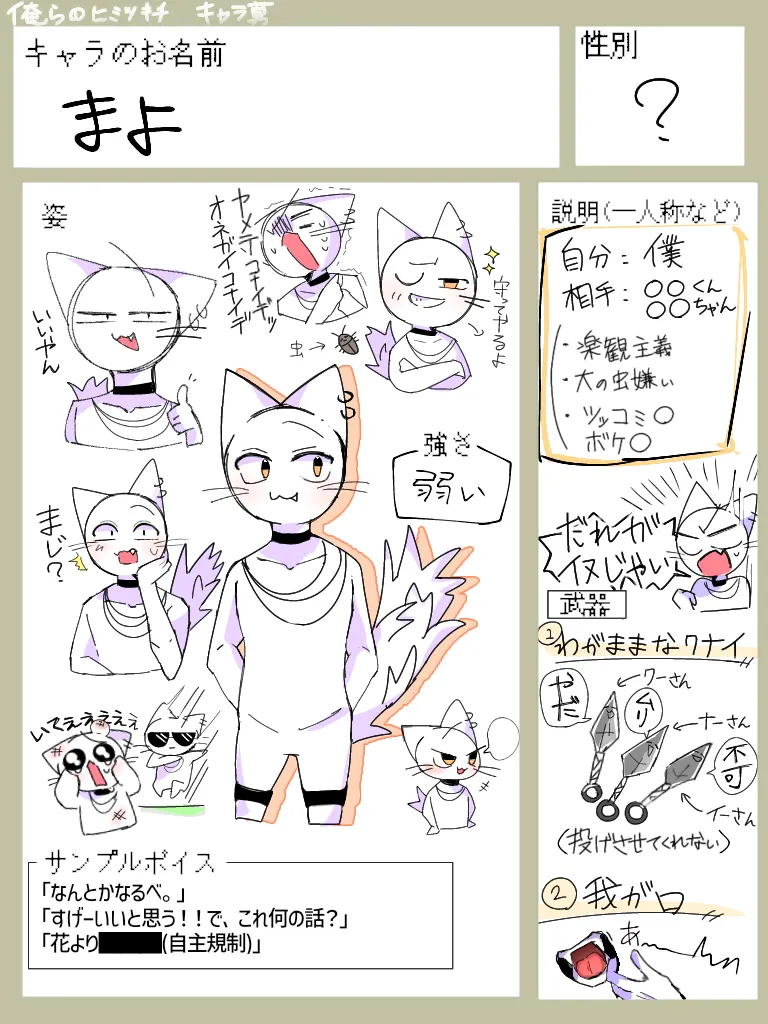 俺らのヒミツキチ キャラ募
キャラのお名前
まよ
性別
?
姿
いいやん
ヤメテコナイデッ
オネガイコナイデ
虫→
守ってやるよ
まじ?
強さ
弱い
いてぇえぇぇぇ
サンプルボイス
「なんとかなるべ。」
「すげーいいと思う!!で、これ何の話?」
「花より(自主規制)」
説明(一人称など)
自分:僕
相手:○○くん
○○ちゃん
・楽観主義
・大の虫嫌い
・ツッコミ○
ボケ○
だれが
イヌじゃい
武器
①わがままなクナイ
やだ
ムリ
不可
←クーさん
←ナーさん
イーさん
(投げさせてくれない)
② 我が口
あ〜